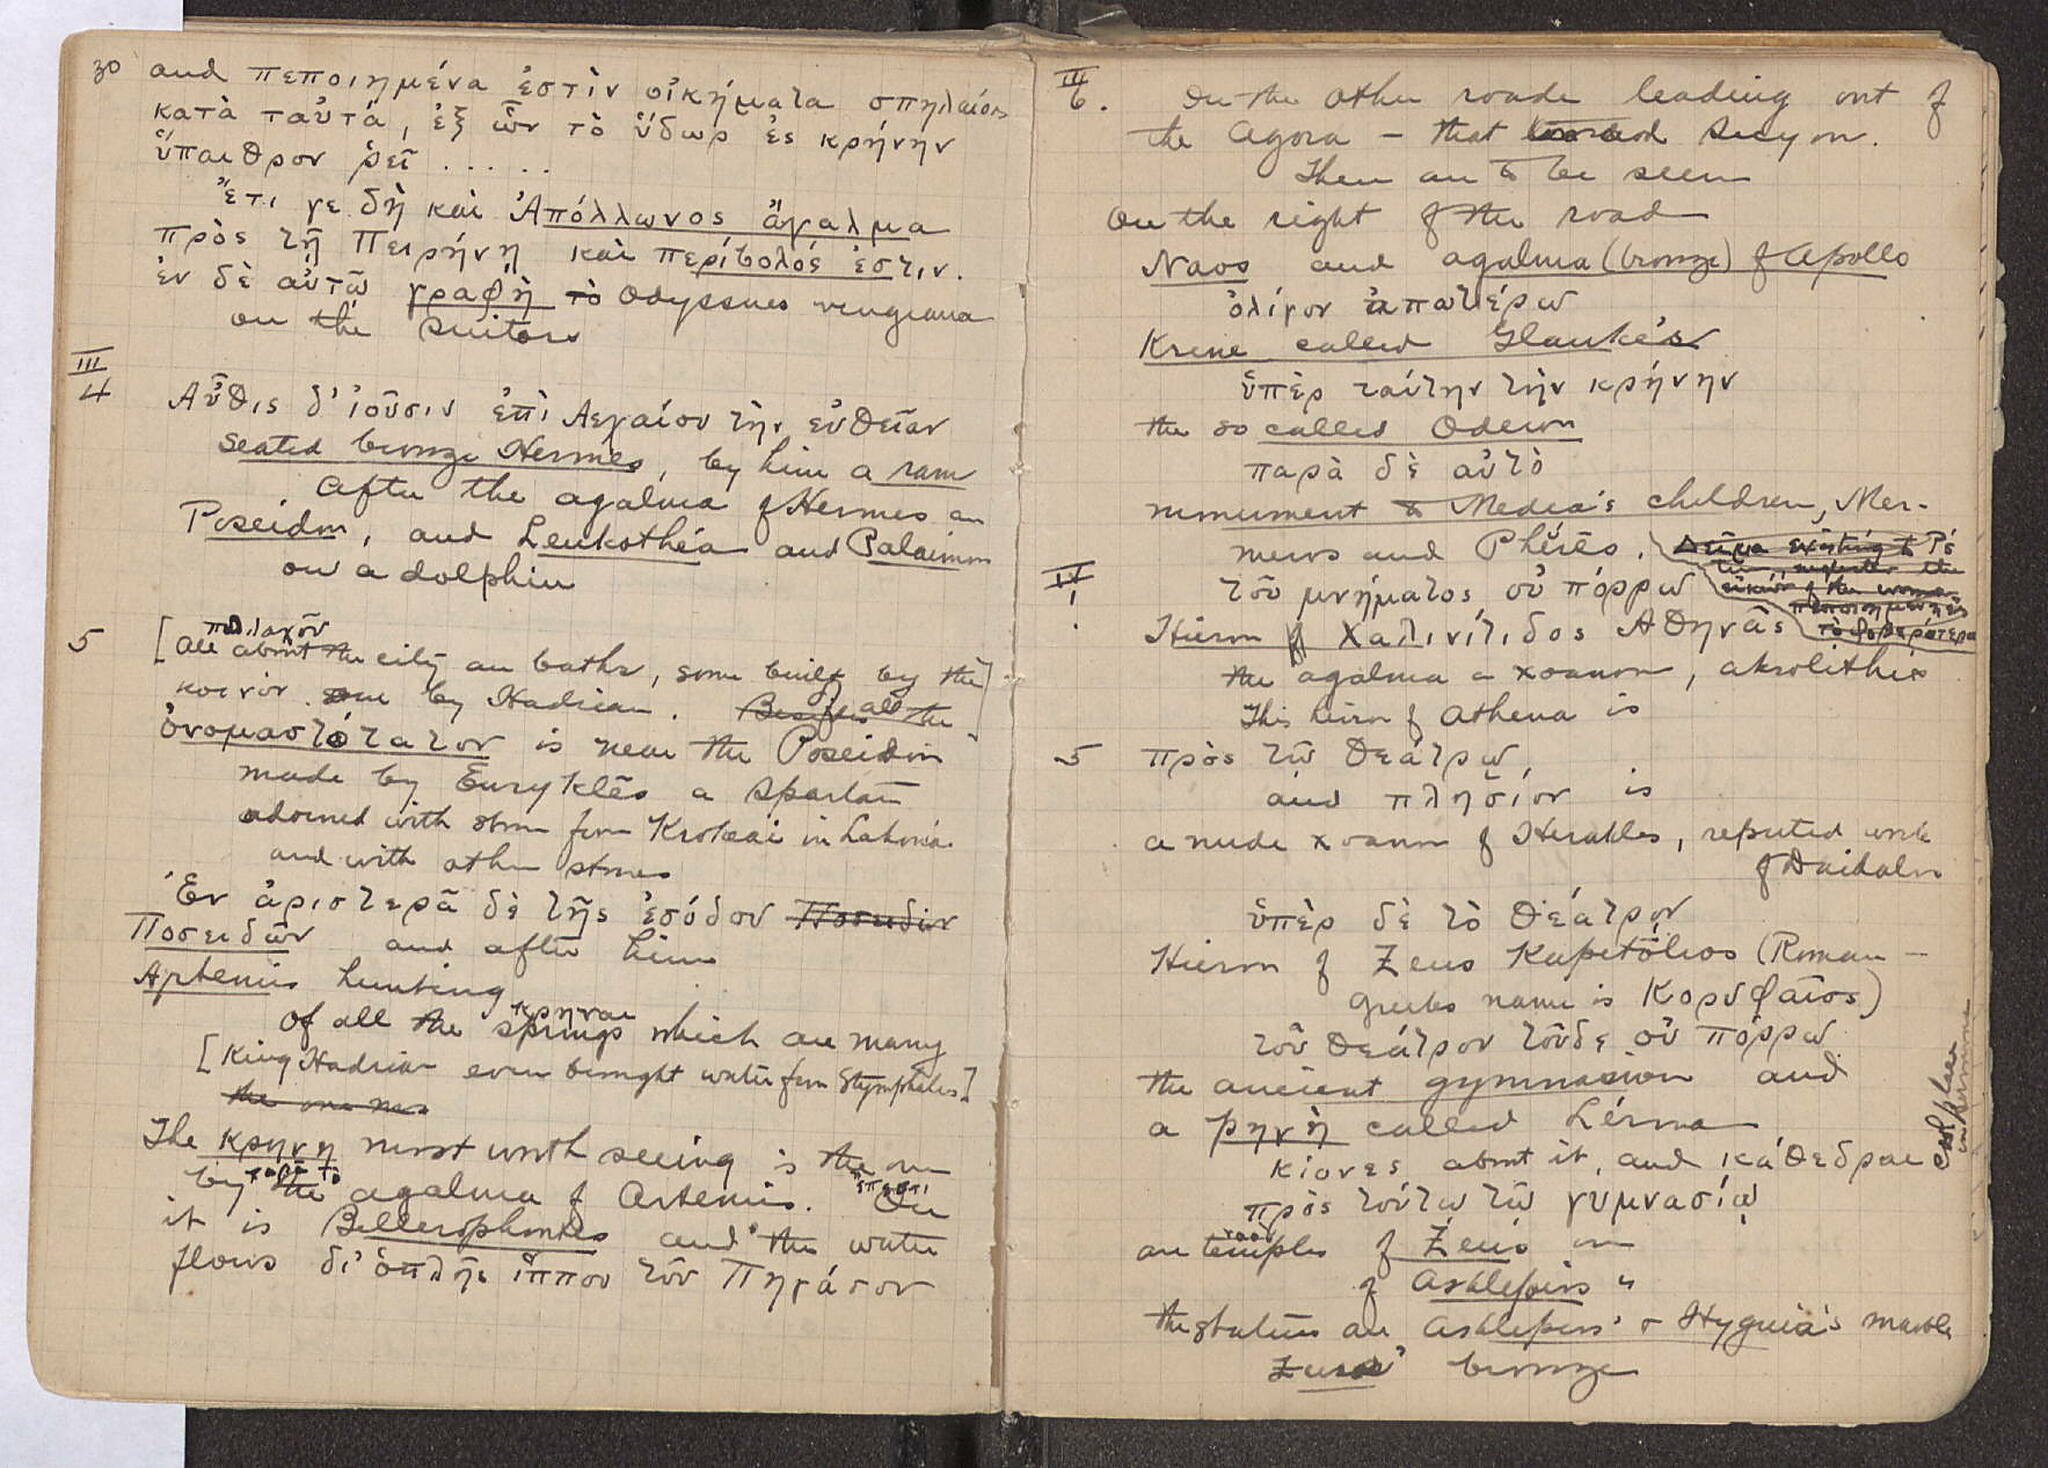 30 and πεποιημένα ἐστὶν οἰκήματα σπηλαίοις
κατὰ ταὐτά, ἐξ ὧν τὸ ὕδωρ ἐς κρήνην
ὕπαιθρον ῥεῖ .....
Ἔτι γε δὴ καὶ Ἀπόλλωνος ἄγαλμα
πρὸς τῇ Πειρήνῃ καὶ περίβολός ἐστιν.
ἐν δὲ αὐτῷ γραφὴ τὸ Odysseus vengeance
on the suitors
III
4 Αὖθις δ' ἰοῦσιν ἐπὶ Λεχαίου τὴν εὐθεῖαν
seated bronze Hermes, by him a ram
After the agalma of Hermes are
Poseidon, and Leukothéa and Palaimon
on a dolphin
πολλαχοῦ
5 [All about the city are baths, some built by the]
κοινόν one by Hadrian. Besides the
of all
ὀνομαστότατον is near the Poseidon
made by Euryklēs a Spartan
adorned with stone from Krokeai in Lakonia
and with other stones
Ἐν ἀριστερᾷ δὲ τῆς ἐσόδου Ποσειδῶν
Ποσειδῶν and after him
Artemis hunting
κρηναι
Of all the springs which are many
[King Hadrian even brought water from Stymphalos]
the one nes
The κρηνη most worth seeing is the one
παρὰ τὸ ἔπεστι
by the agalma of Artemis. On
it is Bellerophontes and the water
flows δι' ὁπλῆς ἵππου τοῦ Πηγάσου
III
6. On the other roade leading out of
the Agora – that toward Sicyon.
There are to be seen
On the right of the road
Naos and agalma (bronze) of Apollo
ὀλίγον ἀπωτέρω
Krene called Glauke's
ὑπὲρ ταύτην τὴν κρήνην
the so called Odeion
παρὰ δὲ αὐτὸ
monument to Medea's children, Mer-
meros and Phérēs. Δεῖμα existing to
εἰκών of the woman
πεποιημένη ἐς
τὸ φοβερώτερον
IV
1 τοῦ μνήματος οὐ πόρρω
Hieron of Χαλινίτιδος Ἀθηνᾶς
the agalma a xoanon, akrolithic
This hieron of Athena is
5 πρὸς τῷ θεάτρῳ,
and πλησίον is
a nude xoanon of Herakles, reputed work
of Daidalos
ὑπὲρ δὲ τὸ θέατρον
Hieron of Zeus Kapetōlios (Roman –
Greeks name is Κορυφαῖος)
τοῦ θεάτρου τοῦδε οὐ πόρρω
the ancient gymnasion and
a ρηνὴ called Lérna
κίονες about it, and κάθεδραι
in Hermione
πρὸς τούτῳ τῷ γυμνασίῳ
ναοὶ
are temples of Zeus one
of Asklepios "
the statues are Asklepios' & Hygieia's marble
Zeus' bronze